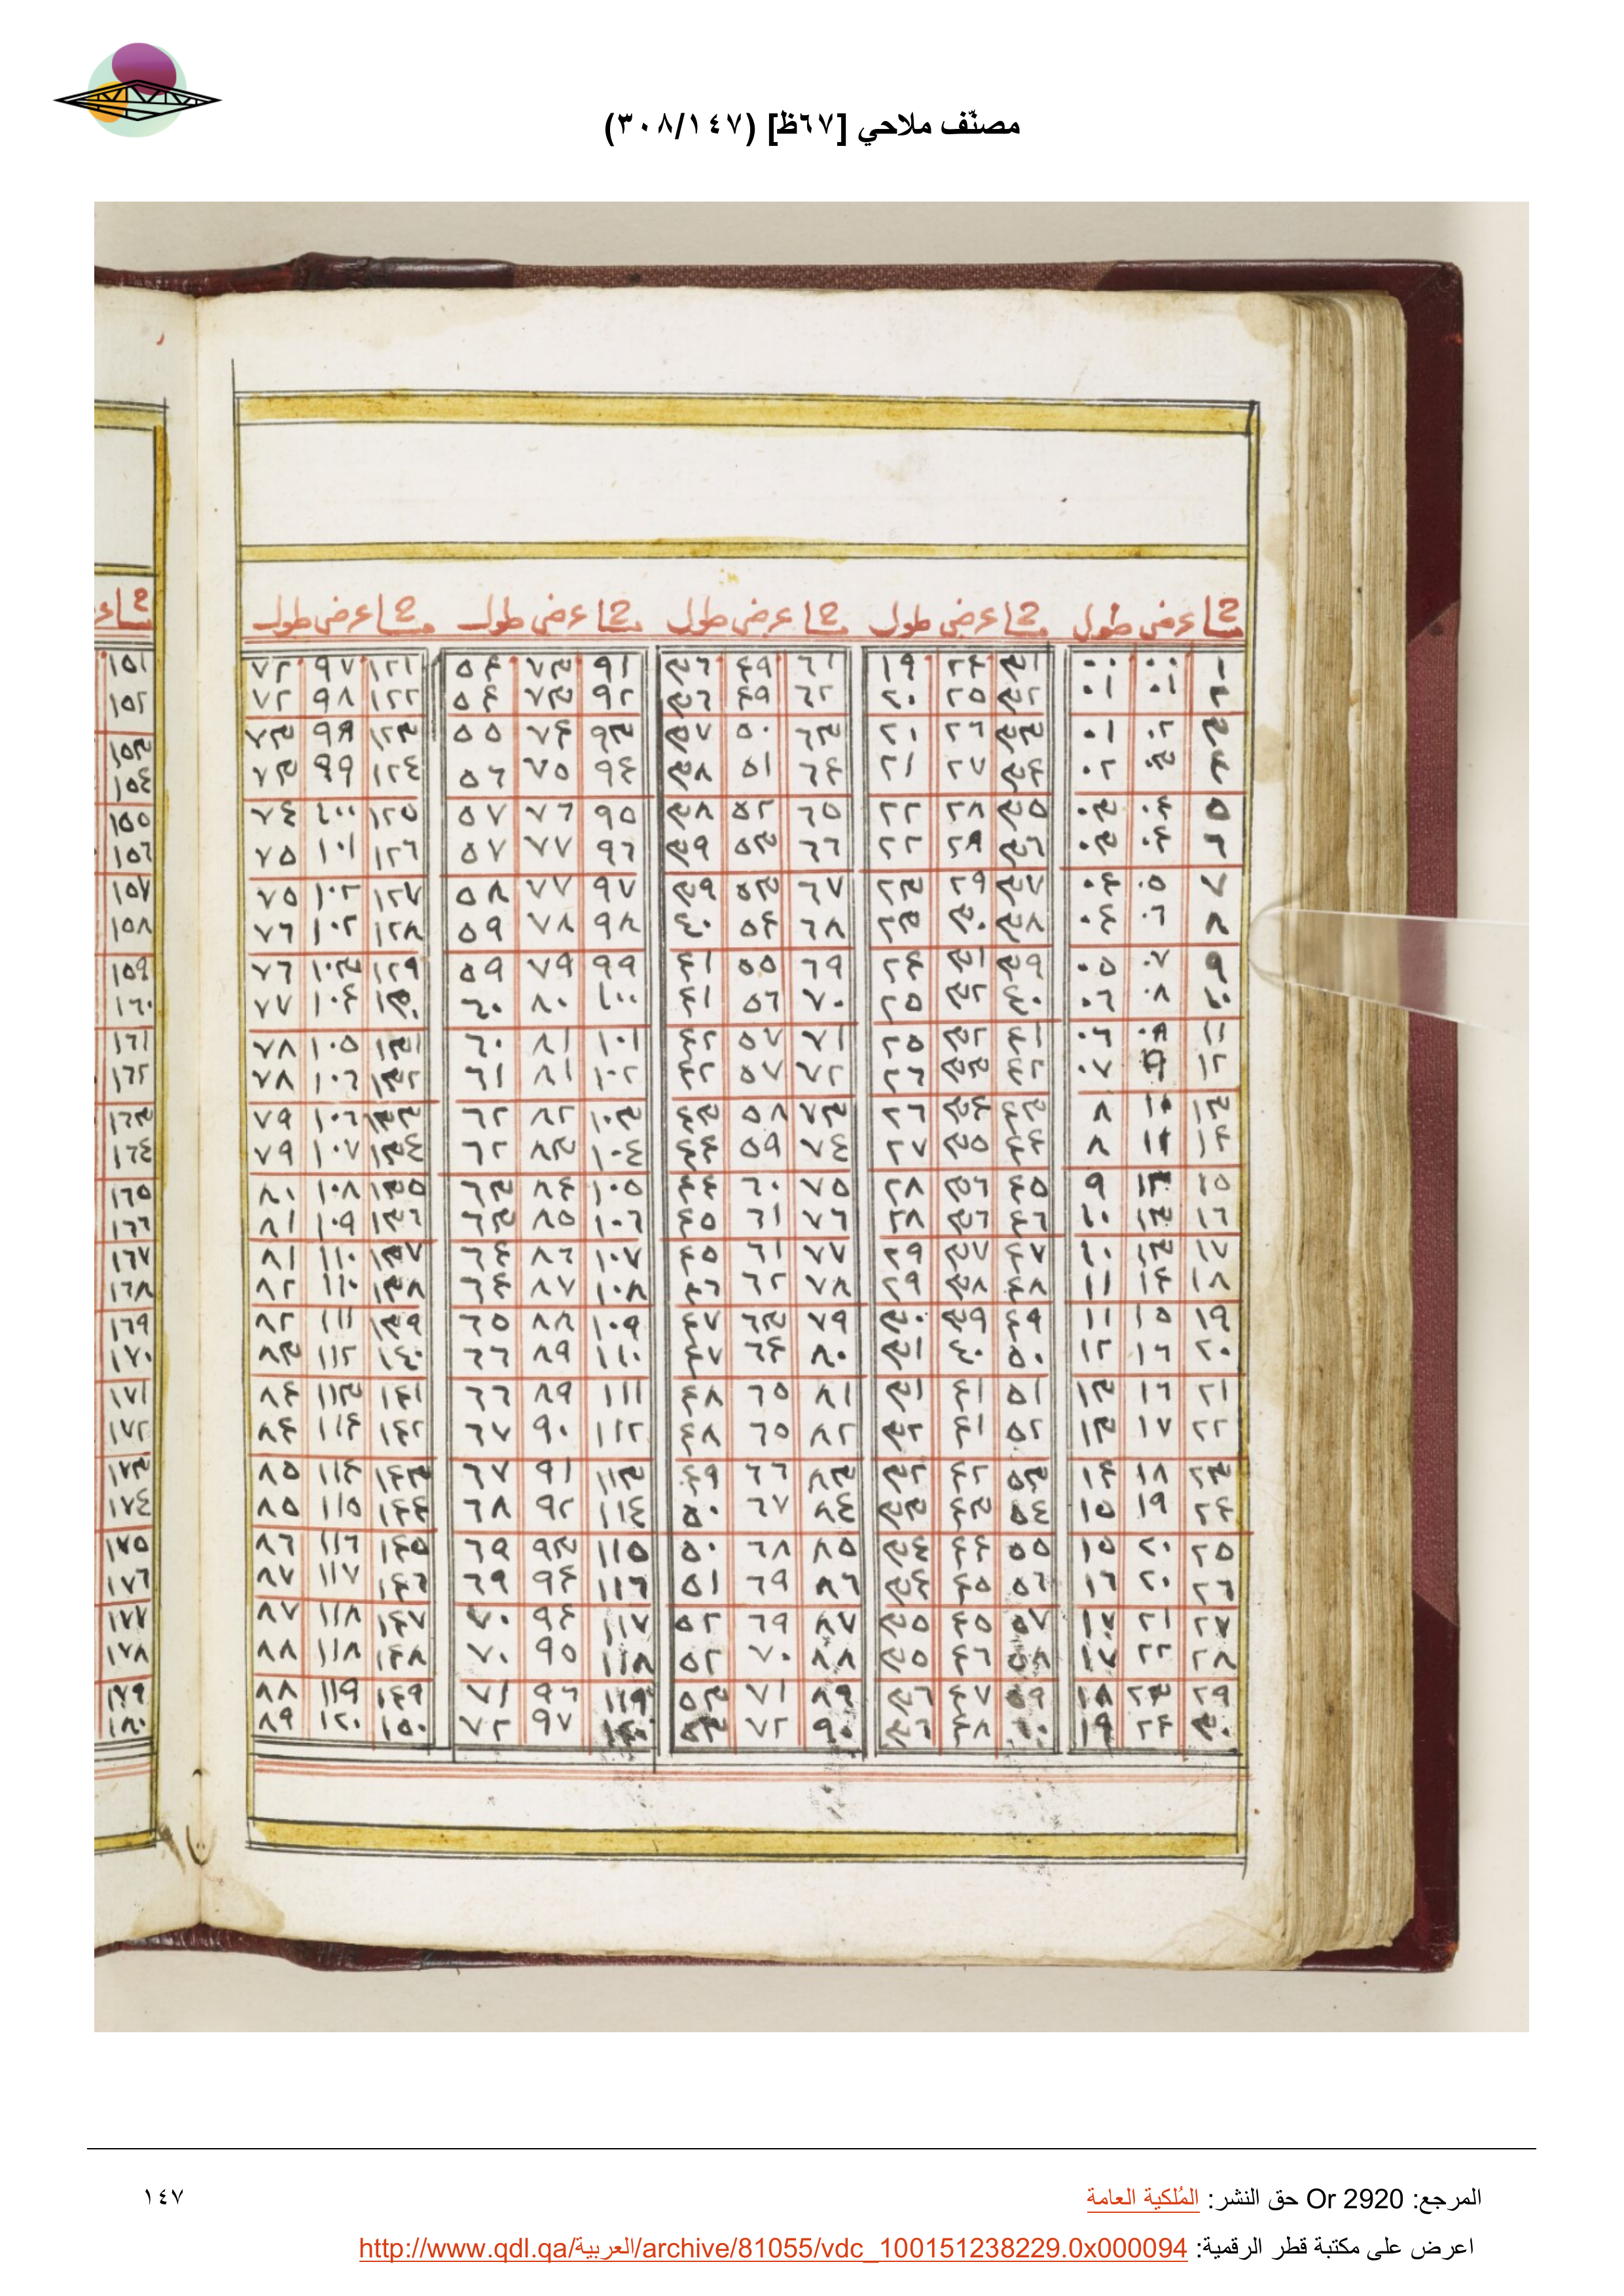 مصنّف ملاحي [٦٧ظ] (٣٠٨/١٤٧)
عرض طول عرض طول عرض طول عرض طول عرض طول
١ ٠٠ ٠٠ ٣١ ٢٤ ١٩ ٦١ ٤٩ ٣٦ ٩١ ٧٣ ٥٤ ١٢١ ٩٧ ٧٢
٢ ٠١ ٠١ ٣٢ ٢٥ ٢٠ ٦٢ ٤٩ ٣٦ ٩٢ ٧٣ ٥٤ ١٢٢ ٩٨ ٧٢
٣ ٠٢ ٠١ ٣٣ ٢٦ ٢٠ ٦٣ ٥٠ ٣٧ ٩٣ ٧٤ ٥٥ ١٢٣ ٩٨ ٧٣
٤ ٠٣ ٠٢ ٣٤ ٢٧ ٢١ ٦٤ ٥١ ٣٨ ٩٤ ٧٥ ٥٦ ١٢٤ ٩٩ ٧٣
٥ ٠٤ ٠٣ ٣٥ ٢٨ ٢٢ ٦٥ ٥٢ ٣٨ ٩٥ ٧٦ ٥٧ ١٢٥ ١٠٠ ٧٤
٦ ٠٤ ٠٣ ٣٦ ٢٨ ٢٢ ٦٦ ٥٣ ٣٩ ٩٦ ٧٧ ٥٧ ١٢٦ ١٠١ ٧٥
٧ ٠٥ ٠٤ ٣٧ ٢٩ ٢٣ ٦٧ ٥٣ ٣٩ ٩٧ ٧٧ ٥٨ ١٢٧ ١٠٢ ٧٥
٨ ٠٦ ٠٤ ٣٨ ٣٠ ٢٣ ٦٨ ٥٤ ٤٠ ٩٨ ٧٨ ٥٩ ١٢٨ ١٠٢ ٧٦
٩ ٠٧ ٠٥ ٣٩ ٣١ ٢٤ ٦٩ ٥٥ ٤١ ٩٩ ٧٩ ٥٩ ١٢٩ ١٠٣ ٧٦
١٠ ٠٨ ٠٦ ٤٠ ٣٢ ٢٥ ٧٠ ٥٦ ٤١ ١٠٠ ٨٠ ٦٠ ١٣٠ ١٠٤ ٧٧
١١ ٠٨ ٠٦ ٤١ ٣٢ ٢٥ ٧١ ٥٧ ٤٢ ١٠١ ٨١ ٦٠ ١٣١ ١٠٥ ٧٨
١٢ ٩ ٠٧ ٤٢ ٣٣ ٢٦ ٧٢ ٥٧ ٤٢ ١٠٢ ٨١ ٦١ ١٣٢ ١٠٦ ٧٨
١٣ ١٠ ٨ ٤٣ ٣٤ ٢٦ ٧٣ ٥٨ ٤٣ ١٠٣ ٨٢ ٦٢ ١٣٣ ١٠٦ ٧٩
١٤ ١١ ٨ ٤٤ ٣٥ ٢٧ ٧٤ ٥٩ ٤٤ ١٠٤ ٨٣ ٦٢ ١٣٤ ١٠٧ ٧٩
١٥ ٩ ٤٥ ٣٦ ٢٨ ٧٥ ٦٠ ٤٤ ١٠٥ ٨٤ ٦٣ ١٣٥ ١٠٨ ٨٠
١٦ ١٣ ١٠ ٤٦ ٣٦ ٢٨ ٧٦ ٦١ ٤٥ ١٠٦ ٨٥ ٦٣ ١٣٦ ١٠٩ ٨١
١٧ ١٣ ١٠ ٤٧ ٣٧ ٢٩ ٧٧ ٦١ ٤٥ ١٠٧ ٨٦ ٦٤ ١٣٧ ١١٠ ٨١
١٨ ١٤ ١١ ٤٨ ٣٨ ٢٩ ٧٨ ٦٢ ٤٦ ١٠٨ ٨٧ ٦٤ ١٣٨ ١١٠ ٨٢
١٩ ١٥ ١١ ٤٩ ٣٩ ٣٠ ٧٩ ٦٣ ٤٧ ١٠٩ ٨٨ ٦٥ ١٣٩ ١١١ ٨٢
٢٠ ١٦ ١٢ ٥٠ ٤٠ ٣١ ٨٠ ٦٤ ٤٧ ١١٠ ٨٩ ٦٦ ١٤٠ ١١٢ ٨٣
٢١ ١٦ ١٣ ٥١ ٤١ ٣١ ٨١ ٦٥ ٤٨ ١١١ ٨٩ ٦٦ ١٤١ ١١٣ ٨٤
٢٢ ١٧ ١٣ ٥٢ ٤١ ٣٢ ٨٢ ٦٥ ٤٨ ١١٢ ٩٠ ٦٧ ١٤٢ ١١٤ ٨٤
٢٣ ١٨ ١٤ ٥٣ ٤٢ ٣٢ ٨٣ ٦٦ ٤٩ ١١٣ ٩١ ٦٧ ١٤٣ ١١٤ ٨٥
٢٤ ١٩ ١٥ ٥٤ ٤٣ ٣٣ ٨٤ ٦٧ ٥٠ ١١٤ ٩٢ ٦٨ ١٤٤ ١١٥ ٨٥
٢٥ ٢٠ ١٥ ٥٥ ٤٤ ٣٤ ٨٥ ٦٨ ٥٠ ١١٥ ٩٣ ٦٩ ١٤٥ ١١٦ ٨٦
٢٦ ٢٠ ١٦ ٥٦ ٤٥ ٣٤ ٨٦ ٦٩ ٥١ ١١٦ ٩٤ ٦٩ ١٤٦ ١١٧ ٨٧
٢٧ ٢١ ١٧ ٥٧ ٤٥ ٣٥ ٨٧ ٦٩ ٥٢ ١١٧ ٩٤ ٧٠ ١٤٧ ١١٨ ٨٧
٢٨ ٢٢ ١٧ ٥٨ ٤٦ ٣٥ ٨٨ ٧٠ ٥٢ ١١٨ ٩٥ ٧٠ ١٤٨ ١١٨ ٨٨
٢٩ ٢٣ ١٨ ٥٩ ٤٧ ٣٦ ٨٩ ٧١ ٥٣ ١١٩ ٩٦ ٧١ ١٤٩ ١١٩ ٨٨
٣٠ ٢٤ ١٩ ٤٨ ٣٦ ٩٠ ٧٢ ٥٣ ٩٧ ٧٢ ١٥٠ ١٢٠ ٨٩
١٥١
١٥٢
١٥٣
١٥٤
١٥٥
١٥٦
١٥٧
١٥٨
١٥٩
١٦٠
١٦١
١٦٢
١٦٣
١٦٤
١٦٥
١٦٦
١٦٧
١٦٨
١٦٩
١٧٠
١٧١
١٧٢
١٧٣
١٧٤
١٧٥
١٧٦
١٧٧
١٧٨
١٧٩
١٨٠
المرجع: Or 2920 حق النشر: المُلكية العامة
١٤٧
اعرض على مكتبة قطر الرقمية: http://www.qdl.qa/العربية/archive/81055/vdc_100151238229.0x000094